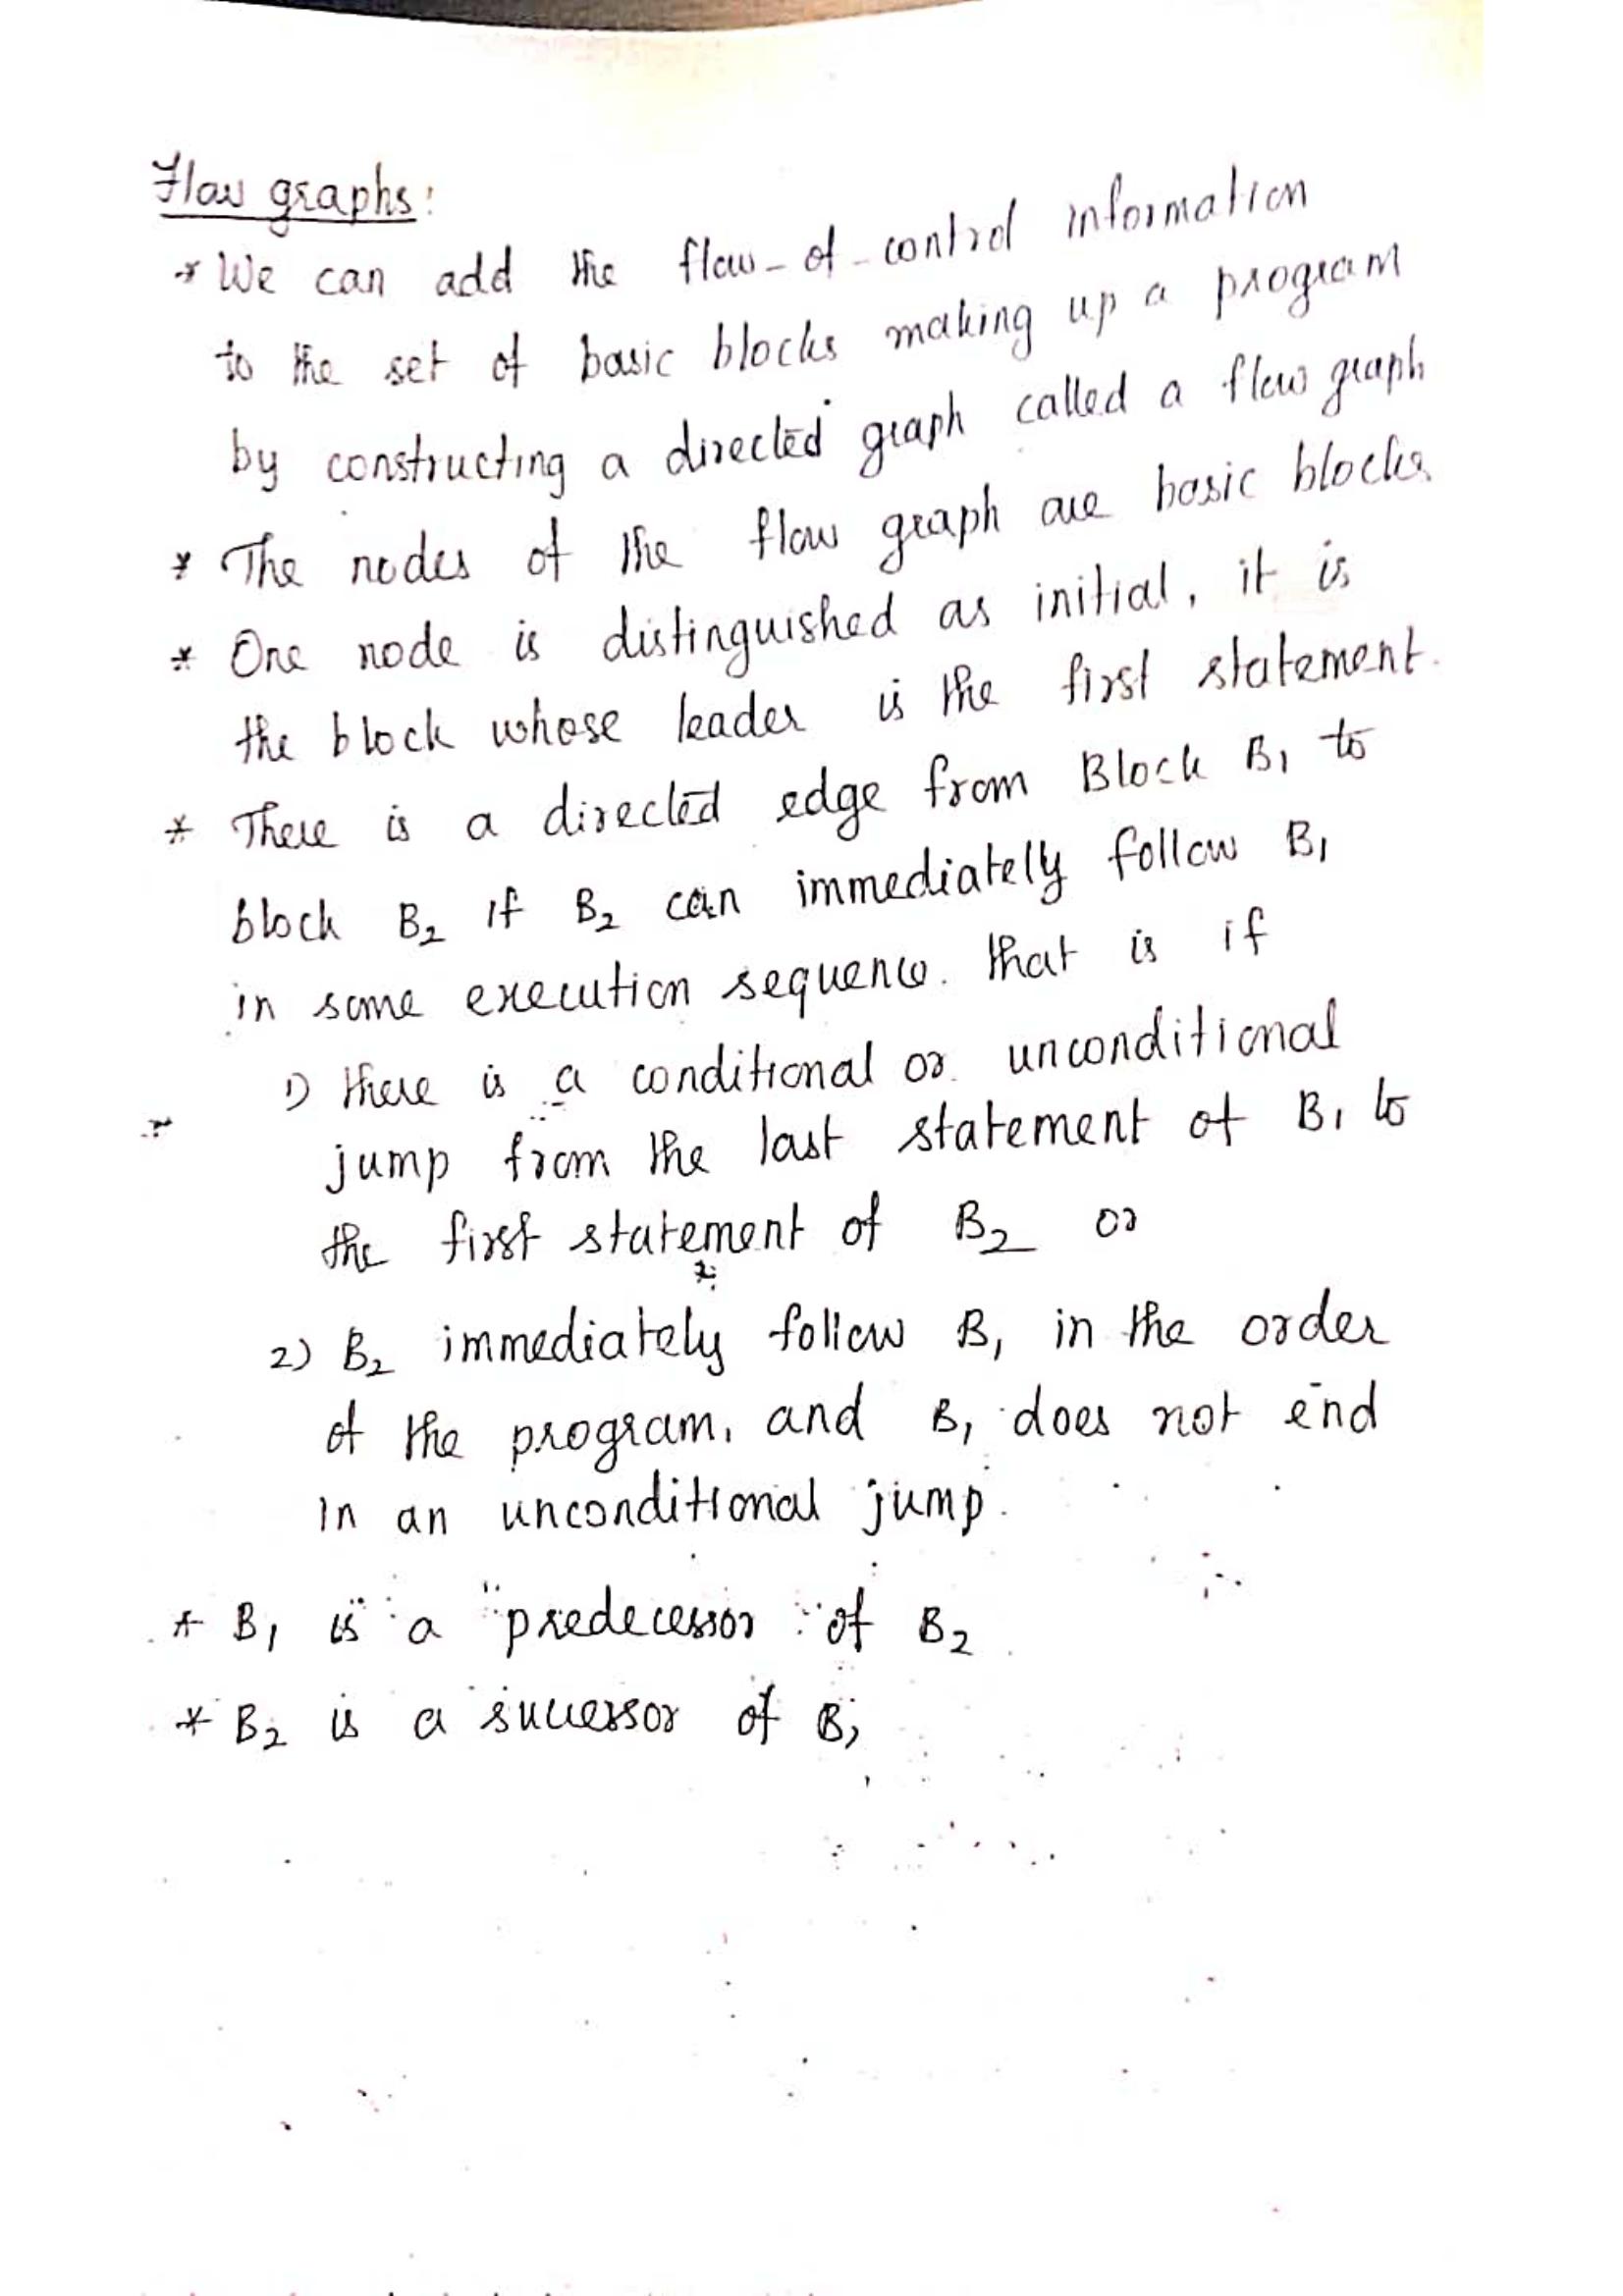 Flow graphs:
* We can add the flow-of-control information
to the set of basic blocks making up a program
by constructing a directed graph called a flow graph
* The nodes of the flow graph are basic blocks.
* One node is distinguished as initial, it is
the block whose leader is the first statement.
* There is a directed edge from Block B1 to
block B2 if B2 can immediately follow B1
in some execution sequence. that is if
1) there is a conditional or unconditional
jump from the last statement of B1 to
the first statement of B2 or
2) B2 immediately follow B1 in the order
of the program, and B1 does not end
in an unconditional jump.
* B1 is a predecessor of B2
* B2 is a successor of B1